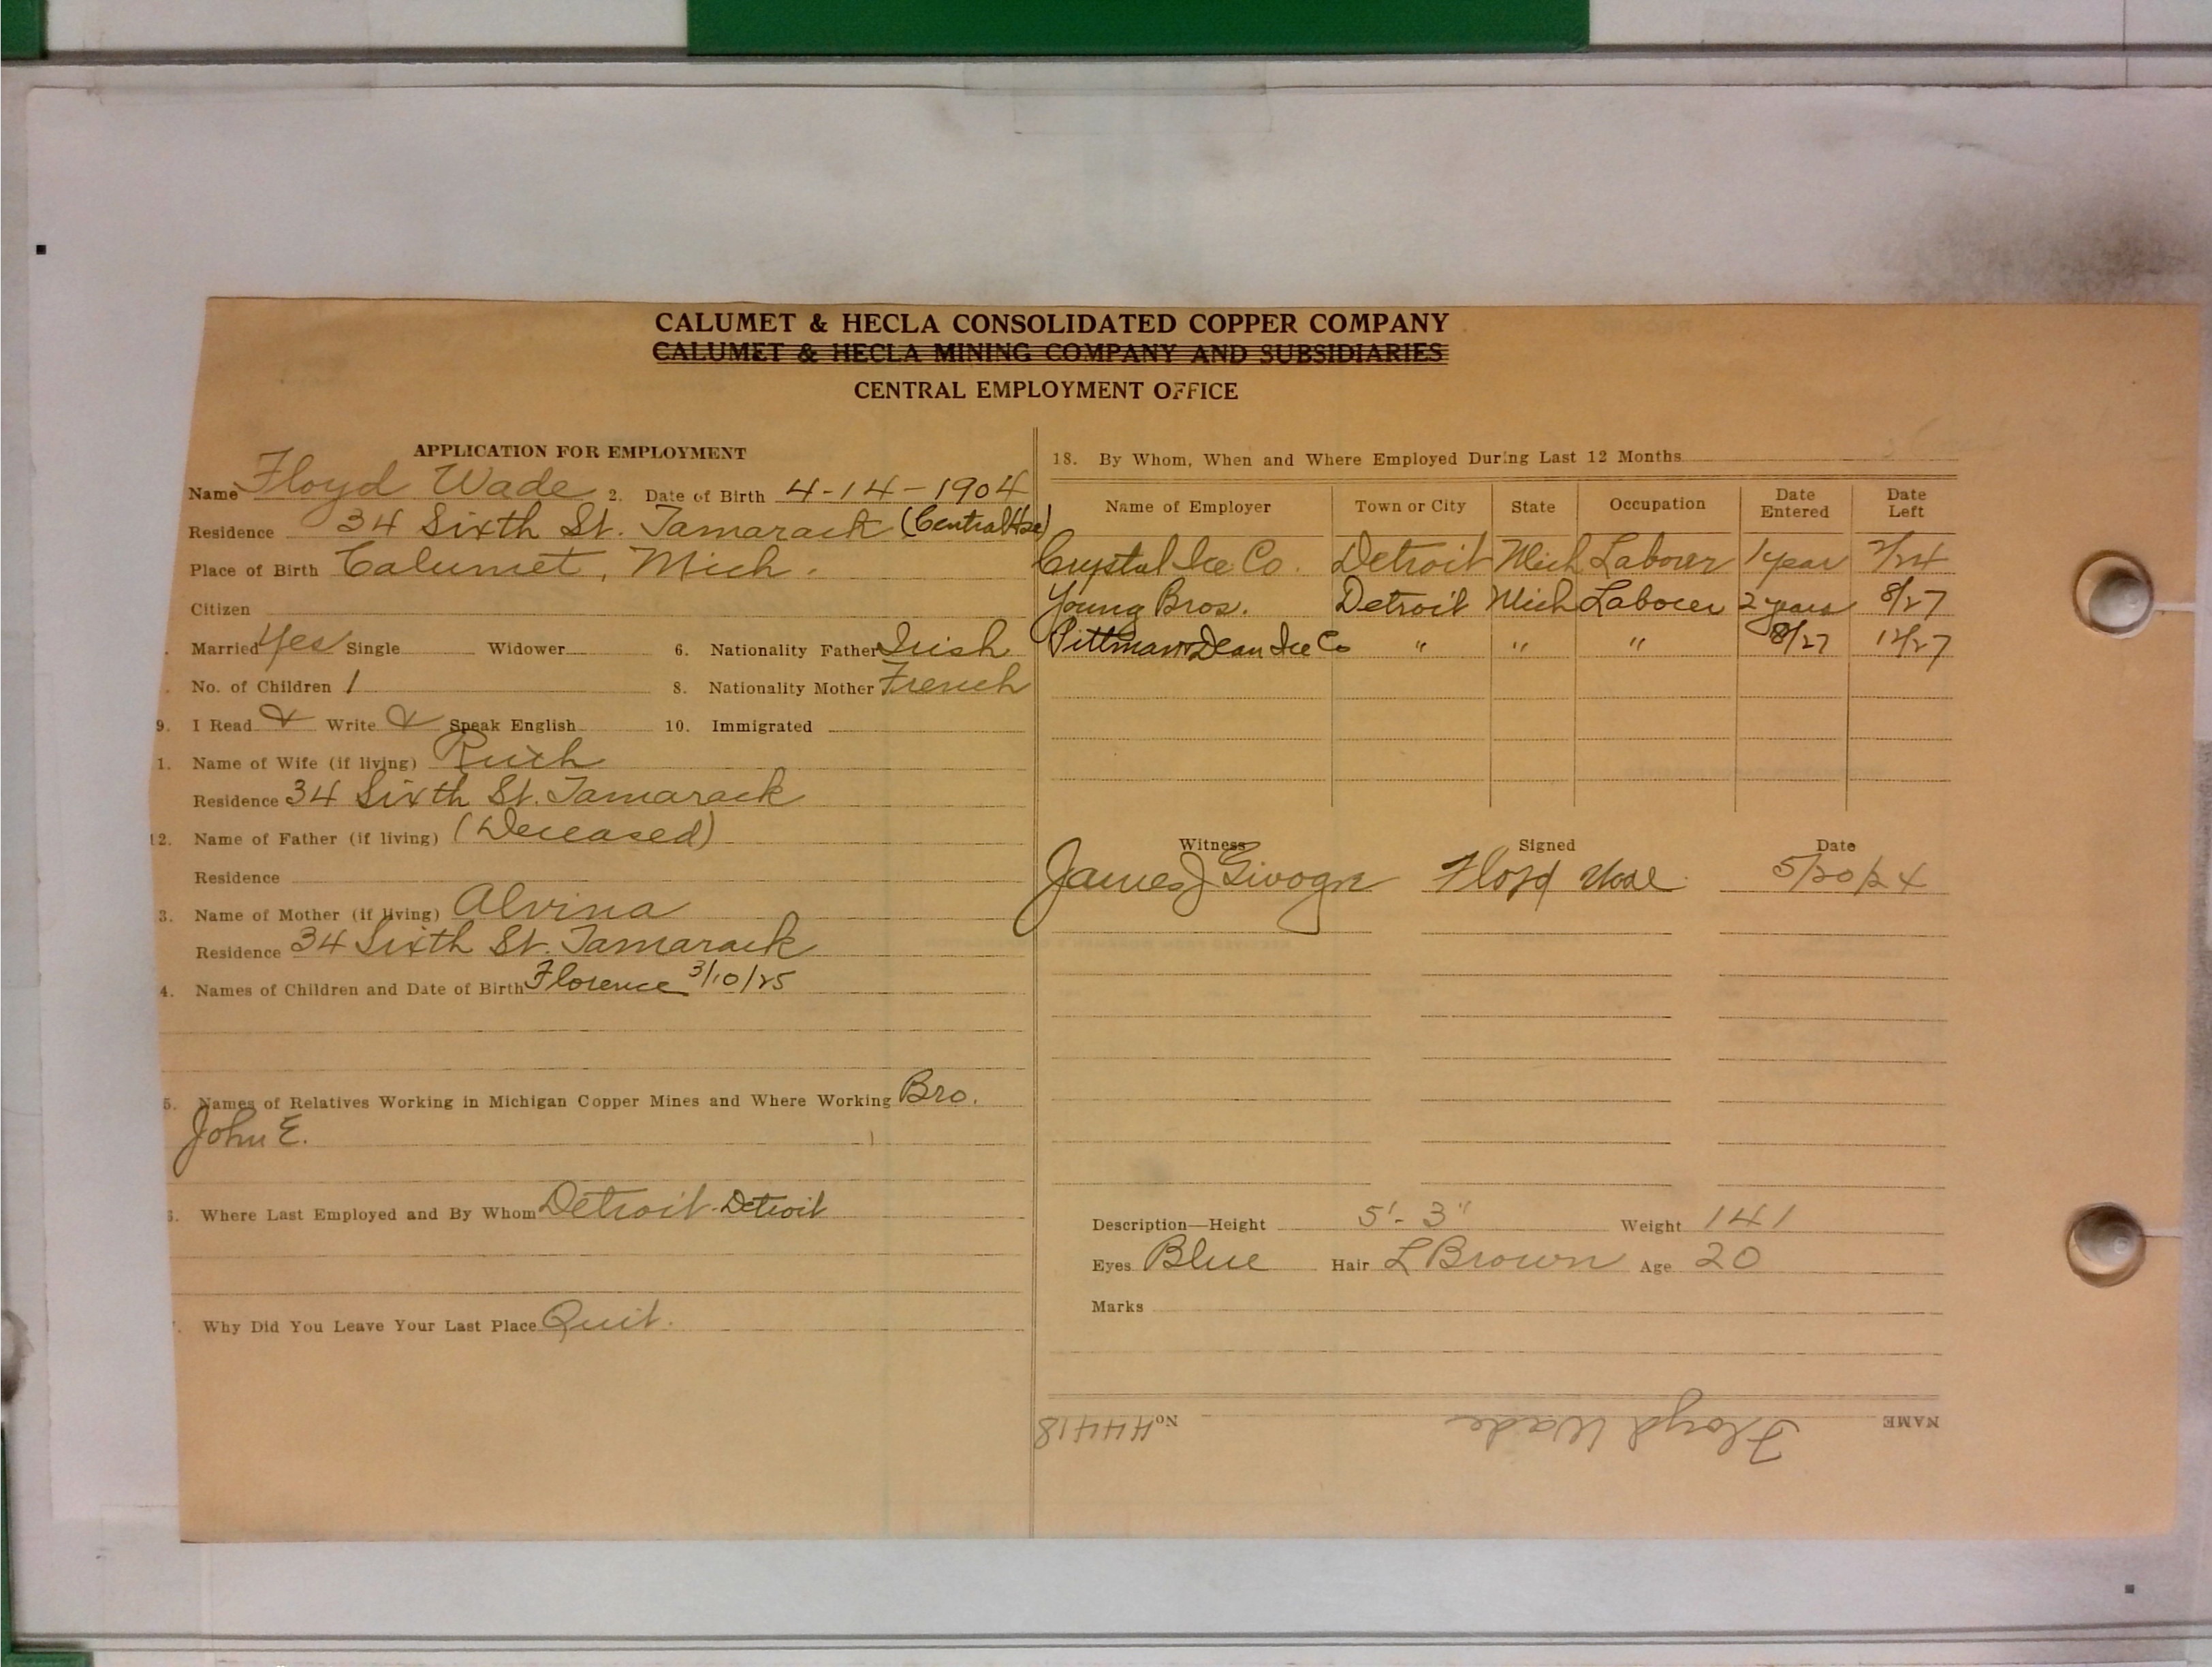 CALUMET & HECLA CONSOLIDATED COPPER COMPANY
CALUMET & HECLA MINING COMPANY AND SUBSIDIARIES
CENTRAL EMPLOYMENT OFFICE
APPLICATION FOR EMPLOYMENT
Name Floyd Wade 2. Date of Birth 4-14-1904
Residence 34 Sixth St. Tamarack (Central Hse)
Place of Birth Calumet, Mich.
Citizen
Married Yes Single Widower 6. Nationality Father Irish
No. of Children 1 8. Nationality Mother French
9. I Read & Write & Speak English 10. Immigrated
1. Name of Wife (if living) Ruth
Residence 34 Sixth St. Tamarack
12. Name of Father (if living) (Deceased)
Residence
3. Name of Mother (if living) Alvina
Residence 34 Sixth St. Tamarack
4. Names of Children and Date of Birth Florence 3/10/25
5. Names of Relatives Working in Michigan Copper Mines and Where Working Bro.
John E.
6. Where Last Employed and By Whom Detroit - Detroit
Why Did You Leave Your Last Place Quit.
18. By Whom, When and Where Employed During Last 12 Months
Name of Employer Town or City State Occupation Date Entered Date Left
Crystal Ice Co. Detroit Mich Laborer 1 year 2/24
Young Bros. Detroit Mich Laborer 2 years 8/27
Pittman & Dean Ice Co " " " 8/27 12/27
Witness Signed Date
James J Floyd Wade 5/20/24
Description—Height 5'-3" Weight 141
Eyes Blue Hair L Brown Age 20
Marks
NAME Floyd Wade No. 44418